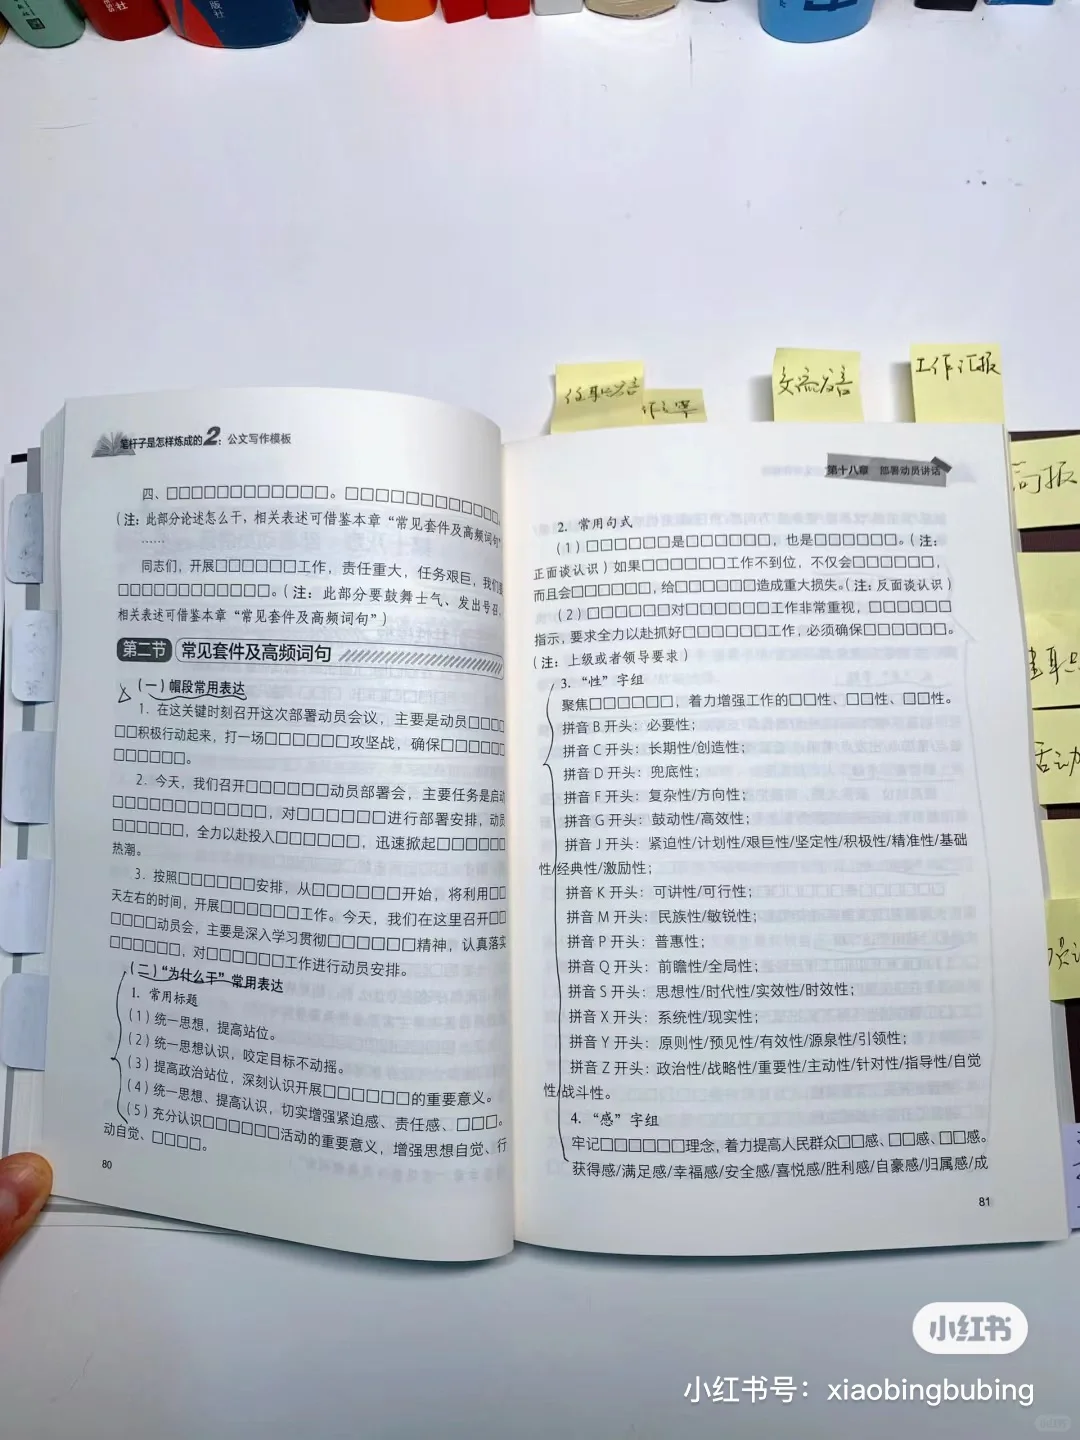 版社
任职发言
交流发言
工作汇报
笔杆子是怎样炼成的2：公文写作模板
四、□□□□□□□□□□□□。□□□□□□□□□□□□
（注：此部分论述怎么干，相关表述可借鉴本章“常见套件及高频词句”
……
同志们，开展□□□□□□工作，责任重大，任务艰巨，我们
□□□□□□□□□□□。（注：此部分要鼓舞士气、发出号召，
相关表述可借鉴本章“常见套件及高频词句”）
第二节 常见套件及高频词句
（一）帽段常用表达
1. 在这关键时刻召开这次部署动员会议，主要是动员□□□□
□□积极行动起来，打一场□□□□□□攻坚战，确保□□□□□
□□□□□□。
2. 今天，我们召开□□□□□□动员部署会，主要任务是启动
□□□□□□□□□□□，对□□□□□□进行部署安排，动员
□□□□□□，全力以赴投入□□□□□□，迅速掀起□□□□□
热潮。
3. 按照□□□□□□安排，从□□□□□□开始，将利用□□
天左右的时间，开展□□□□□□工作。今天，我们在这里召开□□
□□□□动员会，主要是深入学习贯彻□□□□□□精神，认真落实
□□□□□□，对□□□□□□工作进行动员安排。
（二）“为什么干”常用表达
1. 常用标题
（1）统一思想，提高站位。
（2）统一思想认识，咬定目标不动摇。
（3）提高政治站位，深刻认识开展□□□□□□的重要意义。
（4）统一思想、提高认识，切实增强紧迫感、责任感、□□□。
（5）充分认识□□□□□□活动的重要意义，增强思想自觉、行
动自觉、□□□□。
80
第十八章 部署动员讲话
2. 常用句式
（1）□□□□□□是□□□□□□，也是□□□□□□。（注：
正面谈认识）如果□□□□□□工作不到位，不仅会□□□□□□，
而且会□□□□□□，给□□□□□□造成重大损失。（注：反面谈认识）
（2）□□□□□□对□□□□□□工作非常重视，□□□□□□
指示，要求全力以赴抓好□□□□□□工作，必须确保□□□□□□。
（注：上级或者领导要求）
3. “性”字组
聚焦□□□□□□，着力增强工作的□□性、□□性、□□性。
拼音 B 开头：必要性；
拼音 C 开头：长期性/创造性；
拼音 D 开头：兜底性；
拼音 F 开头：复杂性/方向性；
拼音 G 开头：鼓动性/高效性；
拼音 J 开头：紧迫性/计划性/艰巨性/坚定性/积极性/精准性/基础
性/经典性/激励性；
拼音 K 开头：可讲性/可行性；
拼音 M 开头：民族性/敏锐性；
拼音 P 开头：普惠性；
拼音 Q 开头：前瞻性/全局性；
拼音 S 开头：思想性/时代性/实效性/时效性；
拼音 X 开头：系统性/现实性；
拼音 Y 开头：原则性/预见性/有效性/源泉性/引领性；
拼音 Z 开头：政治性/战略性/重要性/主动性/针对性/指导性/自觉
性/战斗性。
4. “感”字组
牢记□□□□□□理念，着力提高人民群众□□感、□□感、□□感。
获得感/满足感/幸福感/安全感/喜悦感/胜利感/自豪感/归属感/成
81
简报
活动
小红书
小红书号：xiaobingbubing